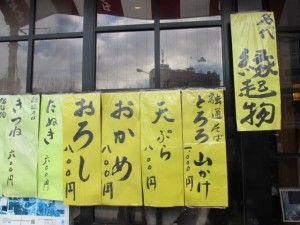 縁起物
融通そば
とろろ山かけ
一〇〇〇円
天ぷら
八〇〇円
おかめ
八〇〇円
おろし
八〇〇円
たぬき
六〇〇円
きつね
六〇〇円